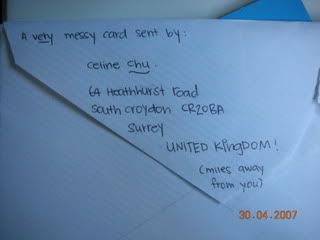 A very messy card sent by:
celine chu.
64 Heathhurst Road
South Croydon CR20BA
Surrey
UNITED KINGDOM!
(miles away
from you)
30.04.2007